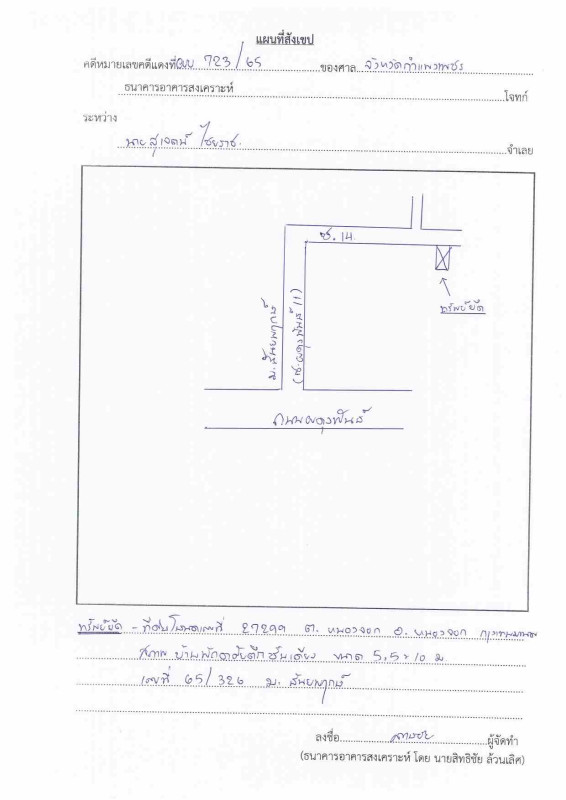 แผนที่สังเขป
คดีหมายเลขคดีแดงที่ ผบ. 723/65 ของศาล จังหวัดกำแพงเพชร
ธนาคารอาคารสงเคราะห์ โจทก์
ระหว่าง
นาย ไชยราช. จำเลย
ซ. 14.
ทรัพย์ยึด
ม.
(ซ.ผดุงพันธ์ 11)
ถนนผดุงพันธ์
ทรัพย์ยึด - ที่ดินโฉนดเลขที่ 27299 ต. หนองจอก อ. หนองจอก กรุงเทพมหานคร
สภาพ บ้านพักอาศัยตึกชั้นเดียว ขนาด 5.5 x 10 ม
เลขที่ 65/326 ม.
ลงชื่อ ผู้จัดทำ
(ธนาคารอาคารสงเคราะห์ โดย นายสิทธิชัย ล้วนเลิศ)